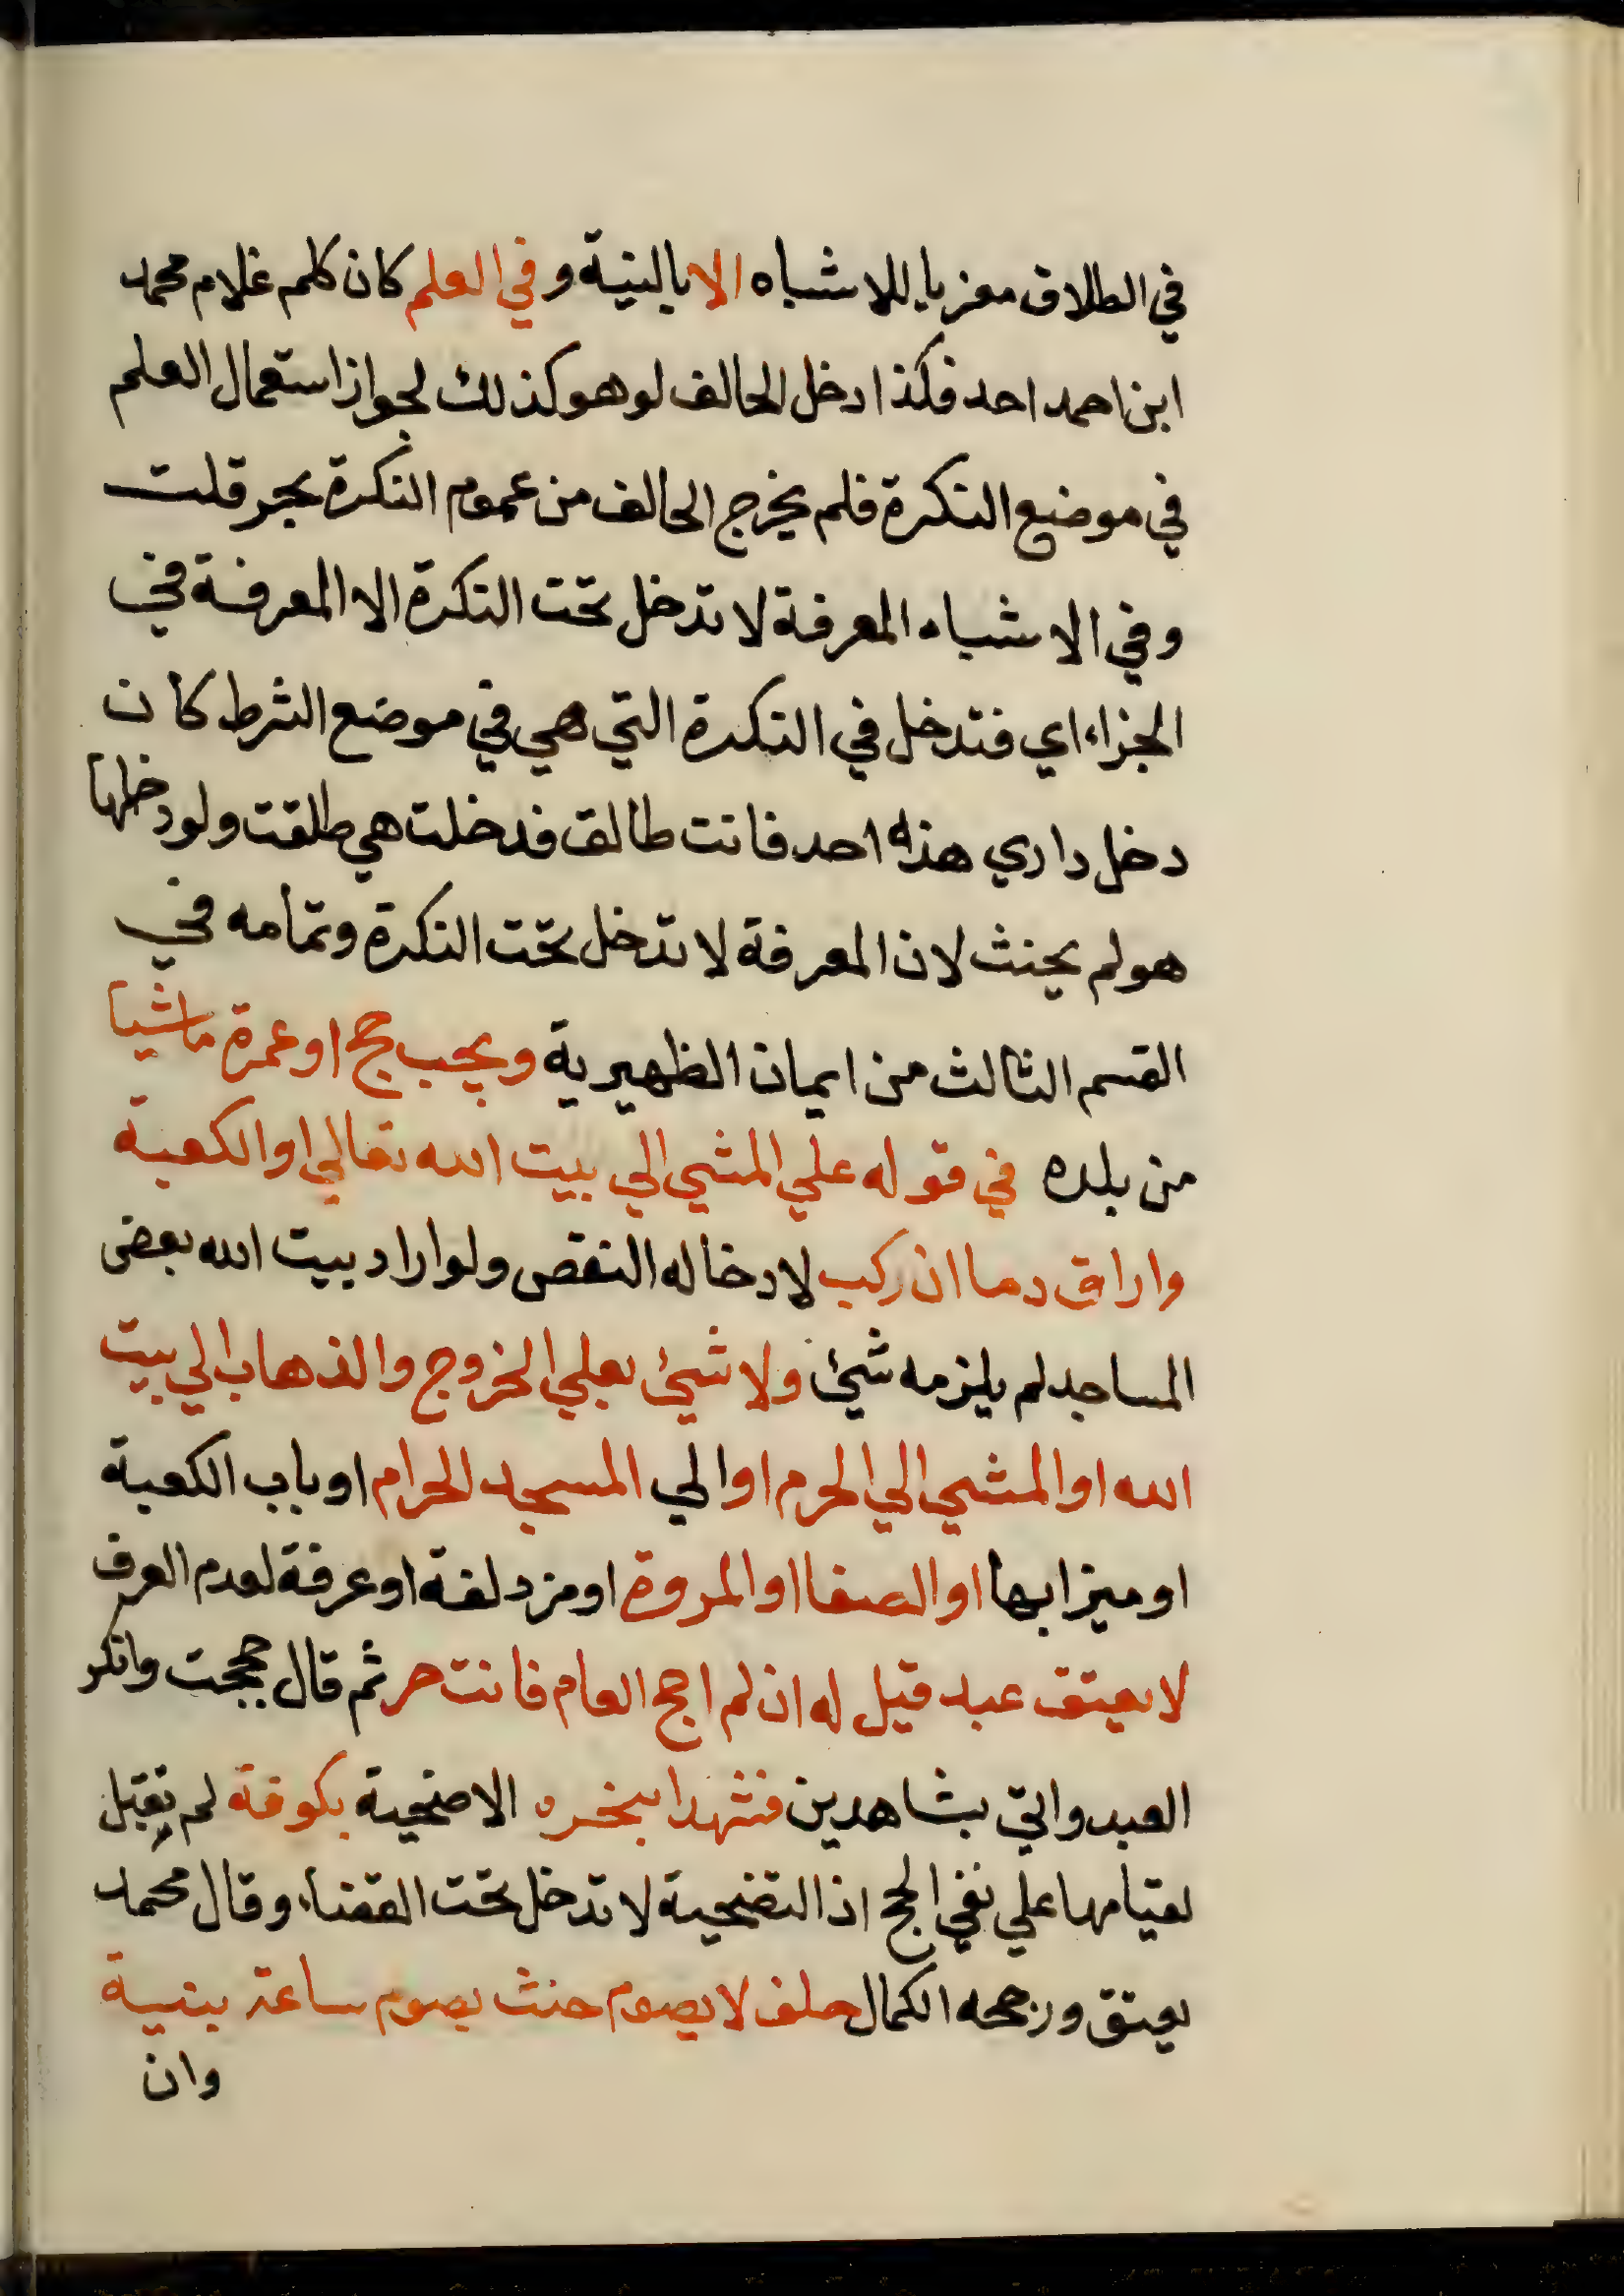 في الطلاق معزيا للاشباه الا بالنية وفي العلم كان كلم غلام محمد
ابن احمد احد فكذا دخل الحالف لو هو كذلك لجواز استعمال العلم
في موضع النكرة فلم يخرج الحالف من عموم النكرة بحر قلت
وفي الاشباه المعرفة لا تدخل تحت النكرة الا المعرفة في
الجزاء اي فتدخل في النكرة التي هي في موضع الشرط كان
دخل داري هذه احد فانت طالق فدخلت هي طلقت ولو دخلها
هو لم يحنث لان المعرفة لا تدخل تحت النكرة وتمامه في
القسم الثالث من ايمان الظهيرية ويجب حج او عمرة ماشيا
من بلده في قوله علي المشي الي بيت الله تعالي او الكعبة
واراق دما ان ركب لادخاله النقص ولو اراد بيت الله بعض
المساجد لم يلزمه شيئ ولا شيئ بعلي الخروج والذهاب الي بيت
الله او المشي الي الحرم او الي المسجد الحرام او باب الكعبة
او ميزابها او الصفا او المروة او مزدلفة او عرفة لعدم العرف
لا يعتق عبد قيل له ان لم احج العام فانت حر ثم قال حججت وانكر
العبد واتي بشاهدين فشهدا بنحره الاضحية بكوفة لم تقبل
لقيامها علي نفي الحج اذ التضحية لا تدخل تحت القضاء وقال محمد
يعتق ورجحه الكمال حلف لا يصوم حنث بصوم ساعة بنية
وان